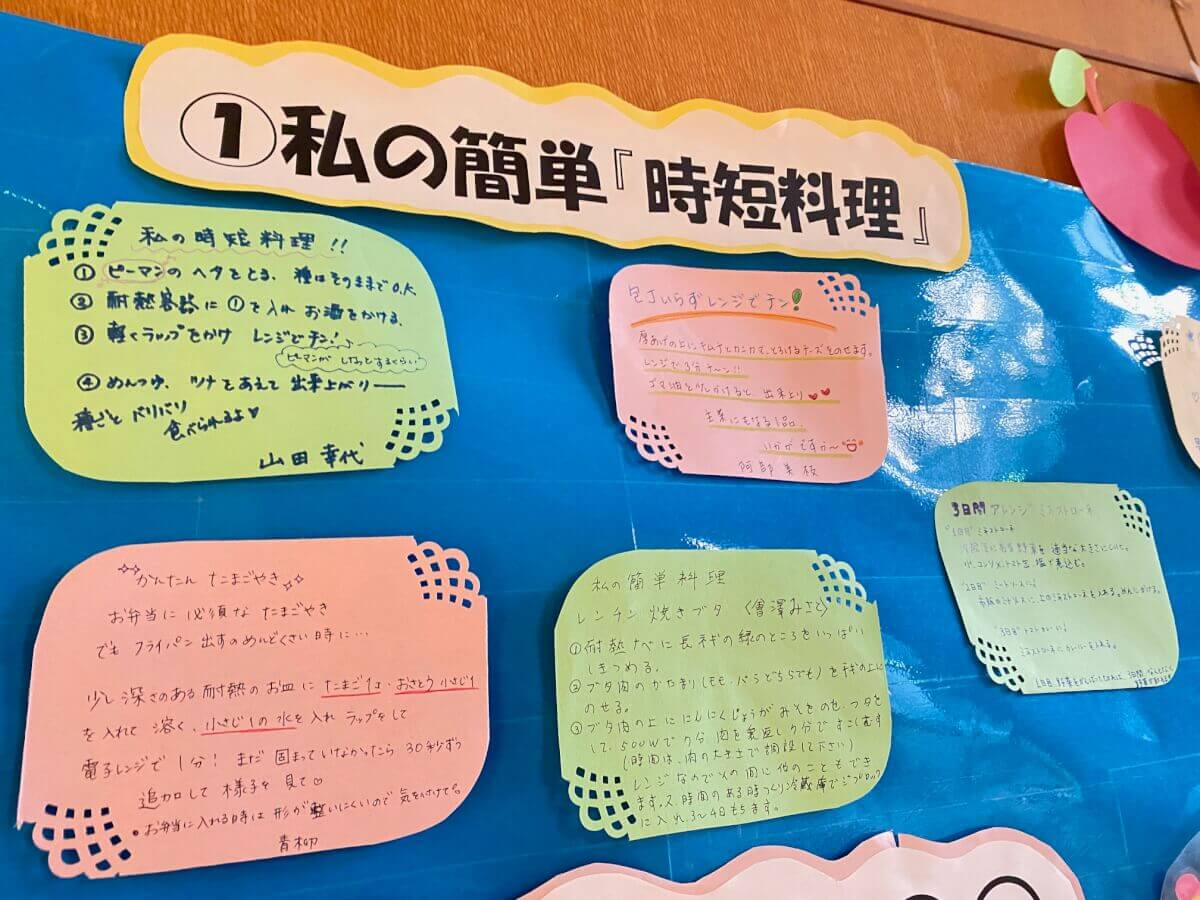 ①私の簡単『時短料理』
私の時短料理!!
① ピーマンのヘタをとる、種はそのままでO.K
② 耐熱容器に①を入れお酒をかける、
③ 軽くラップをかけ レンジでチン!♪
ピーマンがしなっとするくらい
④ めんつゆ、ツナをあえて出来上がりー
種ごとバリバリ
食べられるよ♥
山田幸代
包丁いらずレンジでチン!
厚あげの上にキムチとカニカマ、とろけるチーズをのせます。
レンジで3分チーン!!
ゴマ油を少しかけると 出来上り♥♥
主菜にもなる1品。
いかがですか〜
阿部美枝
かんたん たまごやき
お弁当に必須な たまごやき
でも フライパン出すのめんどくさい時に…
少し深さのある耐熱のお皿に たまご1ヶ、おさとう小さじ1
を入れて溶く、小さじ1の水を入れラップをして
電子レンジで1分! まだ固まっていなかったら30秒ずつ
追加して様子を見て♡
・お弁当に入れる時は形が整いにくいので気を付けて。
青柳
私の簡単料理
レンチン焼きブタ 〈會澤みさと〉
①耐熱なべに長ネギの緑のところをいっぱい
しきつめる。
②ブタ肉のかたまり(モモ、バラどちらでも)をネギの上に
のせる。
③ブタ肉の上ににんにくしょうがみそをのせ、フタを
して、500Wで9分、肉を裏返し9分ですこしむす
(時間は、肉の大きさで調整して下さい)
レンジなのでその間に他のこともでき
ます。又、時間のある時つくり冷蔵庫でジップロック
に入れ、3〜4日もちます。
3日間 アレンジ ミネストローネ
"1日目" ミネストローネ
"2日目" ミートソース♪
"3日目" トマトカレー♪
ミネストローネにカレールーを入れる。